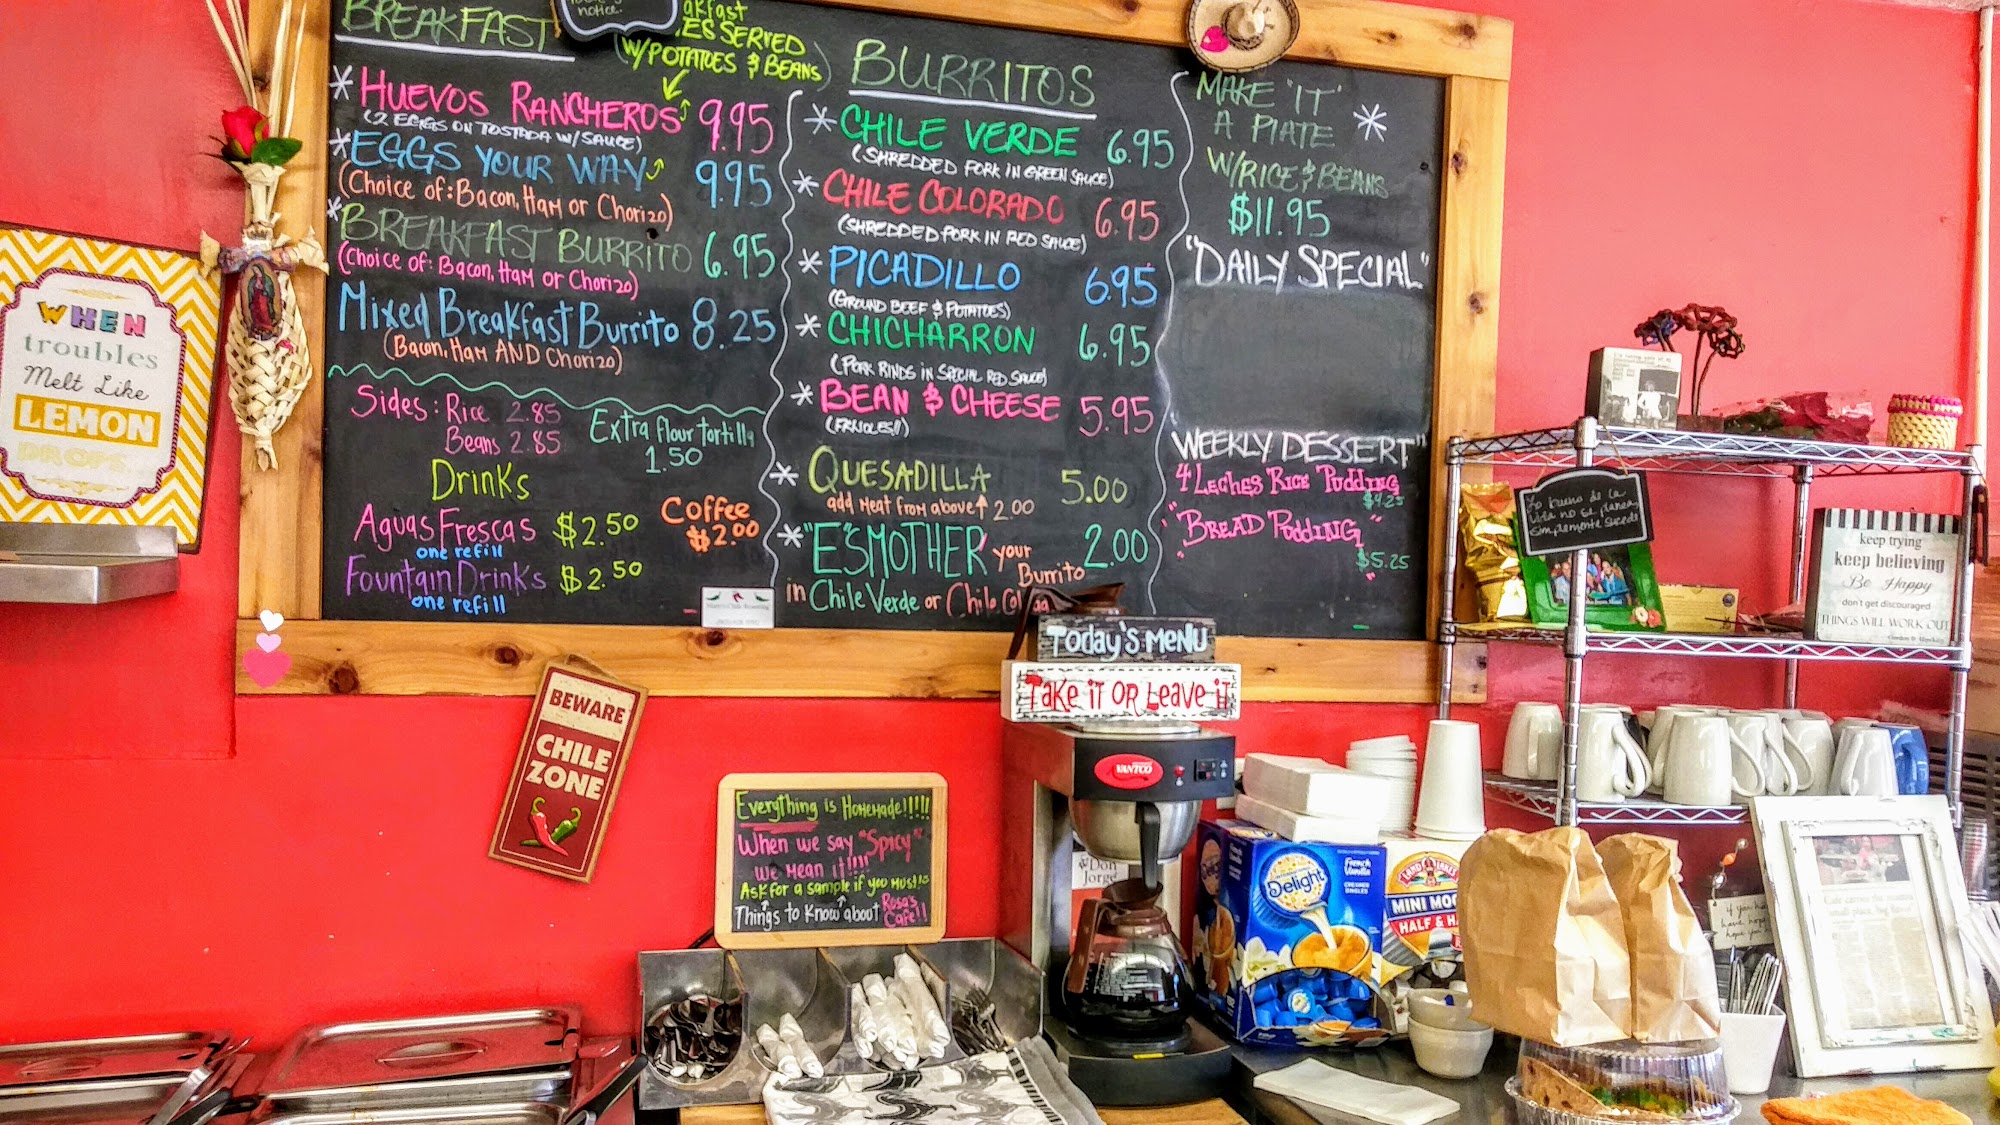 notice.
BREAKFAST
SERVED
W/POTATOES & BEANS
* HUEVOS RANCHEROS 9.95
(2 EGGS ON TOSTADA W/SAUCE)
* EGGS YOUR WAY 9.95
(Choice of: Bacon, Ham or Chorizo)
* BREAKFAST BURRITO 6.95
(Choice of: Bacon, Ham or Chorizo)
Mixed Breakfast Burrito 8.25
(Bacon, Ham AND Chorizo)
Sides: Rice 2.85
Beans 2.85
Extra flour tortilla
1.50
Drinks
Aguas Frescas $2.50
one refill
Fountain Drinks $2.50
one refill
Coffee
$2.00
BURRITOS
* CHILE VERDE 6.95
(SHREDDED PORK IN GREEN SAUCE)
* CHILE COLORADO 6.95
(SHREDDED PORK IN RED SAUCE)
* PICADILLO 6.95
(GROUND BEEF & POTATOES)
* CHICHARRON 6.95
(PORK RINDS IN SPECIAL RED SAUCE)
* BEAN & CHEESE 5.95
(FRIJOLES!!)
* QUESADILLA 5.00
add meat from above 2.00
* "ESMOTHER" your Burrito 2.00
in Chile Verde or Chile
MAKE "IT"
A PLATE *
W/RICE & BEANS
$11.95
"DAILY SPECIAL"
WEEKLY DESSERT"
4 Leches Rice Pudding
$4.25
"Bread Pudding"
$5.25
WHEN
troubles
Melt Like
LEMON
DROPS
BEWARE
CHILE
ZONE
Today's MENU
Take iT OR Leave iT
Everything is Homemade!!!!!
When we say "Spicy"
we mean it!!!!
Ask for a sample if you must!!
Things to Know about Rosa's
Cafe!!
VANTCO
Don
Jorge
International
Delight
French
Vanilla
LAND O LAKES
MINI MOO
HALF & HA
Lo bueno de la
vida no se planea,
simplemente sucede
keep trying
keep believing
Be Happy
don't get discouraged
THINGS WILL WORK OUT
if you
have hope